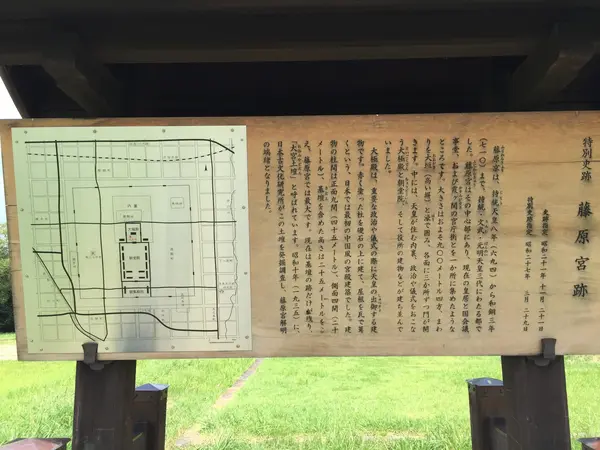 特別史跡　藤原宮跡
史跡指定　昭和二十一年十一月二十一日
特別史跡指定　昭和二十七年　三月二十九日
藤原京は、持統天皇八年（六九四）から和銅三年
（七一〇）まで、持統・文武・元明天皇三代にわたる都で
した。藤原宮はその中心部にあり、現在の皇居と国会議
事堂、および霞ヶ関の官庁街とを一か所に集めたような
ところです。大きさはおよそ九〇〇メートル四方、まわ
りを大垣（高い塀）と濠で囲み、各面に三か所ずつ門が開
きます。中には、天皇が住む内裏、政治や儀式をおこな
う大極殿と朝堂院、そして役所の建物などが建ち並んで
いました。
大極殿は、重要な政治や儀式の際に天皇の出御する建
物です。赤く塗った柱を礎石の上に建て、屋根を瓦で葺
くという、日本では最初の中国風の宮殿建築でした。建
物の柱間は正面九間（四十五メートル）、側面四間（二十
メートル）、基壇を含めた高さは二十五メートルをこ
え、藤原宮では最大です。現在は基壇の跡だけが残り、
「大宮土壇」と呼ばれています。昭和十年（一九三五）に、
日本古文化研究所がこの土壇を発掘調査し、藤原宮解明
の端緒となりました。